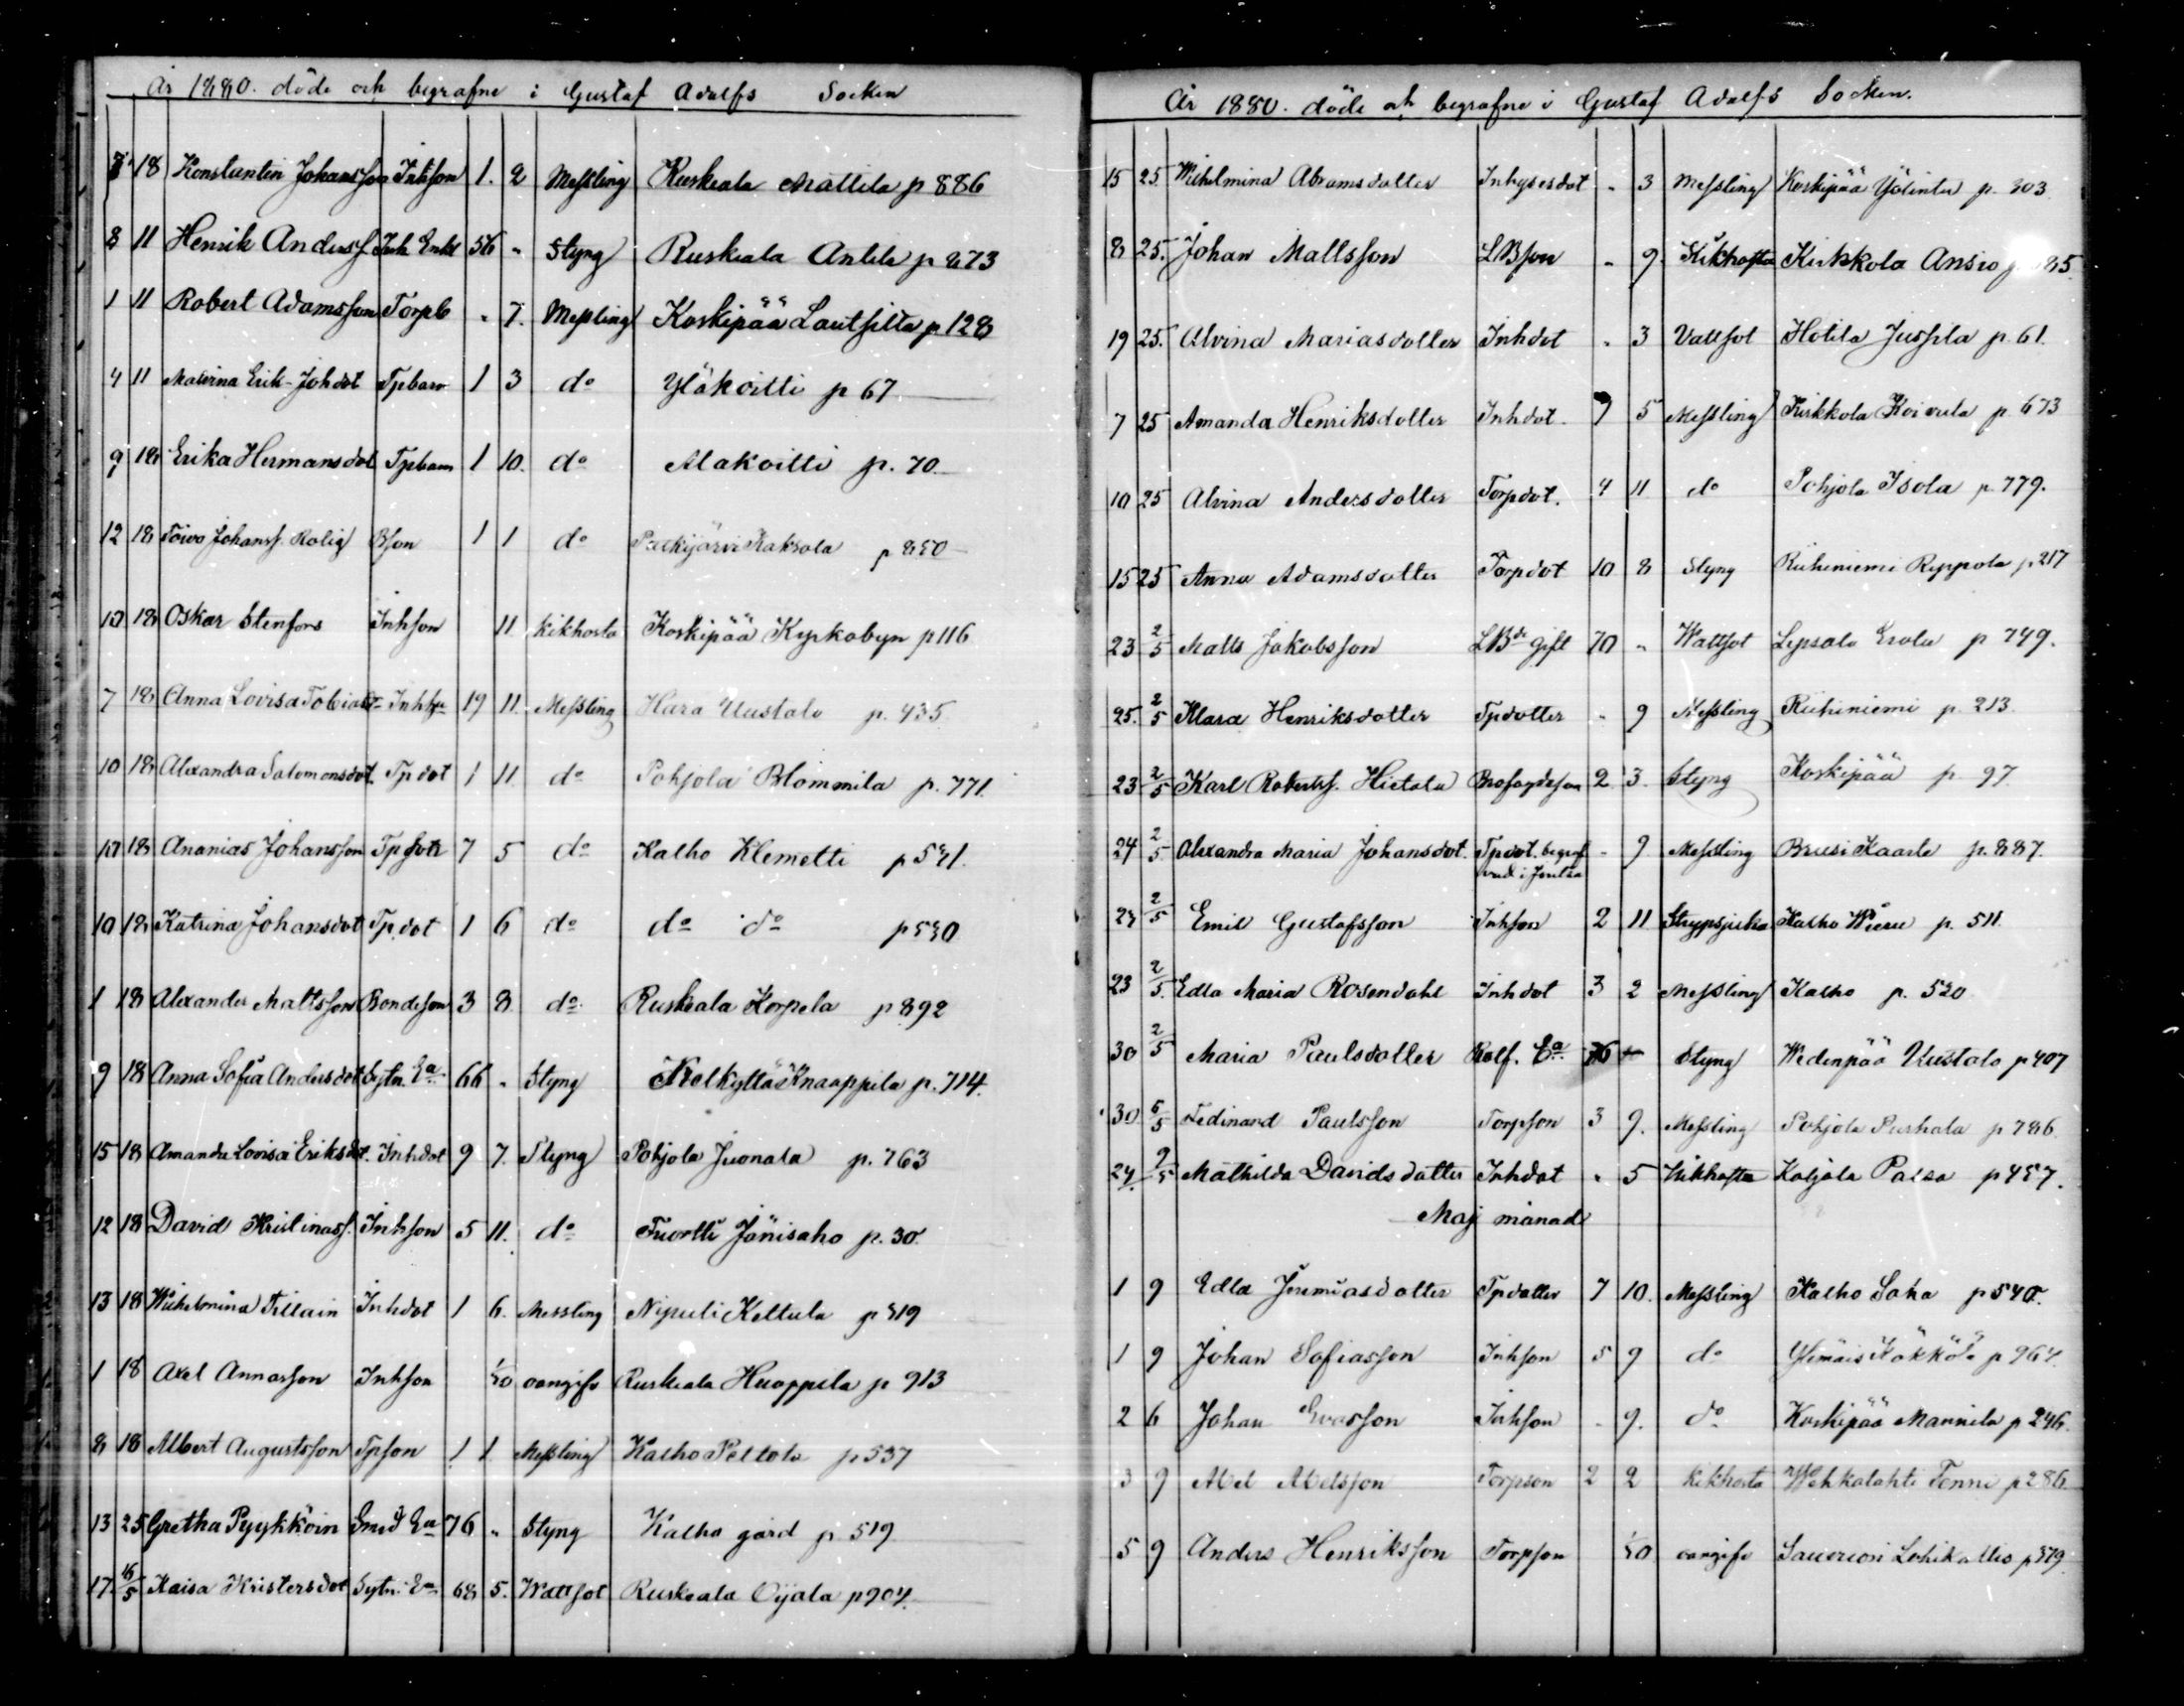 År 1880. döde och begrafne i Gustaf Adolfs Socken
7 18 Konstantin Johansson Inhson 1. 2 Messling Ruskeala Mattila p 886
8 11 Henrik Anderss. Inh Enkl 56 " Styng Ruskeala Antila p 873
1 11 Robert Adamsson Torpb " 7. Messling Koskipää Lautsilta p 128
4 11 Erik-Johdot Tpbarn 1 3 do Yläkoitti p 67
9 18 Erika Hermansdot Tpbarn 1 10. do Alakoitti p. 70
12 18 Toivo Johanss. Rolig Bson 1 1 do Kaksola p 850
10 18 Oskar Stenfors Inhson 11 Kikhosta Koskipää Kyrkobyn p 116
7 18 Anna Lovisa Inh 19 11. Messling Hara Uustalo p. 435
10 18 Alexandra Salomonsdot. Tpdot 1 11. do Pohjola Blommila p. 771.
10 18 Ananias Johansson Tpson 7 5 do Kalho Klemetti p 541.
10 18 Katrina Johansdot Tpdot 1 6 do do do p 530
1 18 Alexander Mattsson Bondeson 3 8 do Ruskeala Korpela p 892
9 18 Anna Sofia Andersdot Sytn. Ea 66 " Styng Knaappila p. 714.
15 18 Amanda Lovisa Eriksdot. Inhdot 9 7. Styng Pohjola Juonala p. 763
12 18 David Kristinass. Inhson 5 11. do Tuortti Jänisaho p. 30.
13 18 Wilhelmina Tillain Inhdot 1 6. Messling Nipuli Kettula p 319
1 18 Axel Annasson Inhson 1/30 oangifv Ruskeala Huoppila p 913
8 18 Albert Augustsson Tpson 1 1 Messling Kalho Peltola p 537
13 25 Gretha Pyykköin Smed Ea 76 " Styng Kalho gård p. 519
17. 16/5 Kaisa Kristersdot Sytn. Ea 68 5. Wattsot Ruskeala Ojala p 904.
År 1880. döde och begrafne i Gustaf Adolfs Socken.
15 25. Wilhelmina Abramsdotter Inhysesdot " 3 Messling Koskipää p. 303
8 25. Johan Mattsson LBson " 9. Kikhosta Kirkkola Ansio
19 25. Alvina Mariasdotter Inhdot " 3 Vattsot Hotila Jussila p. 61.
7 25 Amanda Henriksdotter Inhdot. 7 5 Messling Kirkkola Koivula p. 673
10 25 Alvina Andersdotter Torpdot. 4 11 do Pohjola Isola p. 779.
15 25 Anna Adamsdotter Torpdot 10 8 Styng Riihiniemi Reppola p. 217
23 2/5 Matts Jakobsson LBde gift 70 " Wattsot Lepsala Erola p 749.
25. 2/5 Klara Henriksdotter Tpdotter " 9 Messling Riihiniemi p. 213.
23 2/5 Karl Roberts. Hietala 2 3. Styng Koskipää p. 97
24 2/5 Alexandra Maria Johansdot. Tpdot. begraf vad i Joutsa " 9 Messling Kaarle p. 887.
23 2/5 Emil Gustafsson Inhson 2 11 Strypsjuka Kalho p. 511.
23 2/5. Edla Maria Rosendahl Inhdot 3 2 Messling Kalho p. 520
30 2/5 Maria Paulsdotter Rolf. Ea 76 Styng Wedenpää Uustalo p 407
30 5/5 Fedinard Paulsson Torpson 3 9. Messling Pohjola Purhala p 786.
24. 9/5 Mathilda Davidsdotter Inhdot " 5 Kikhosta Koljola Palsa p 457.
Maj månad
1 9 Edla Jeremiasdotter Tpdotter 7 10. Messling Kalho Saha p 540.
1 9 Johan Sofiasson Inhson 5 9 do Ylimäis Kökkölä p 964.
2 6 Johan Evasson Inhson " 9. do Koskipää Mannila p 246.
3 9 Abel Abelsson Torpson 2 2 Kikhosta Wehkalahti Tonni p 286
5 9 Anders Henriksson Torpson 1/30 oangifv p 379.